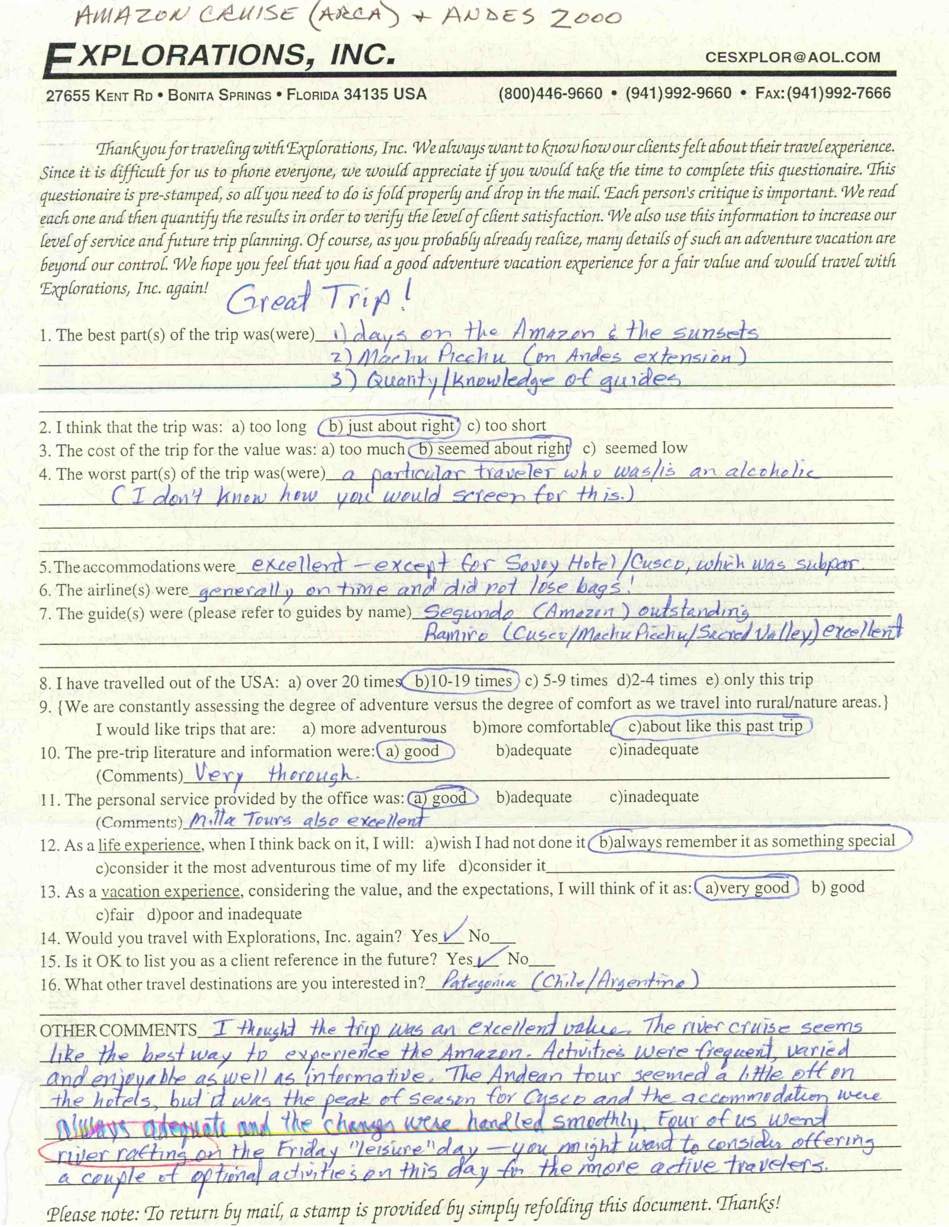 AMAZON CRUISE (ARCA) + ANDES 2000
EXPLORATIONS, INC.
CESXPLOR@AOL.COM
27655 KENT RD • BONITA SPRINGS • FLORIDA 34135 USA (800)446-9660 • (941)992-9660 • FAX:(941)992-7666
Thank you for traveling with Explorations, Inc. We always want to know how our clients felt about their travel experience.
Since it is difficult for us to phone everyone, we would appreciate if you would take the time to complete this questionaire. This
questionaire is pre-stamped, so all you need to do is fold properly and drop in the mail. Each person's critique is important. We read
each one and then quantify the results in order to verify the level of client satisfaction. We also use this information to increase our
level of service and future trip planning. Of course, as you probably already realize, many details of such an adventure vacation are
beyond our control. We hope you feel that you had a good adventure vacation experience for a fair value and would travel with
Explorations, Inc. again!
Great Trip!
1. The best part(s) of the trip was(were) 1) days on the Amazon & the sunsets
2) Machu Picchu (on Andes extension)
3) Quanty/knowledge of guides
2. I think that the trip was: a) too long b) just about right c) too short
3. The cost of the trip for the value was: a) too much b) seemed about right c) seemed low
4. The worst part(s) of the trip was(were) a particular traveler who was/is an alcoholic
(I don't know how you would screen for this.)
5. The accommodations were excellent – except for Savoy Hotel/Cusco, which was subpar.
6. The airline(s) were generally on time and did not lose bags!
7. The guide(s) were (please refer to guides by name) Segundo (Amazon) outstanding
Ramiro (Cusco/Machu Picchu/Sacred Valley) excellent
8. I have travelled out of the USA: a) over 20 times b)10-19 times c) 5-9 times d)2-4 times e) only this trip
9. {We are constantly assessing the degree of adventure versus the degree of comfort as we travel into rural/nature areas.}
I would like trips that are: a) more adventurous b)more comfortable c)about like this past trip
10. The pre-trip literature and information were: a) good b)adequate c)inadequate
(Comments) Very thorough.
11. The personal service provided by the office was: a) good b)adequate c)inadequate
(Comments) Milla Tours also excellent
12. As a life experience, when I think back on it, I will: a)wish I had not done it b)always remember it as something special
c)consider it the most adventurous time of my life d)consider it
13. As a vacation experience, considering the value, and the expectations, I will think of it as: a)very good b) good
c)fair d)poor and inadequate
14. Would you travel with Explorations, Inc. again? Yes ✓ No
15. Is it OK to list you as a client reference in the future? Yes ✓ No
16. What other travel destinations are you interested in? Patagonia (Chile/Argentina)
OTHER COMMENTS I thought the trip was an excellent value. The river cruise seems
like the best way to experience the Amazon. Activities were frequent, varied
and enjoyable as well as informative. The Andean tour seemed a little off on
the hotels, but it was the peak of season for Cusco and the accommodation were
always adequate and the changes were handled smoothly. Four of us went
river rafting on the Friday "leisure" day – you might want to consider offering
a couple of optional activities on this day for the more active travelers.
Please note: To return by mail, a stamp is provided by simply refolding this document. Thanks!